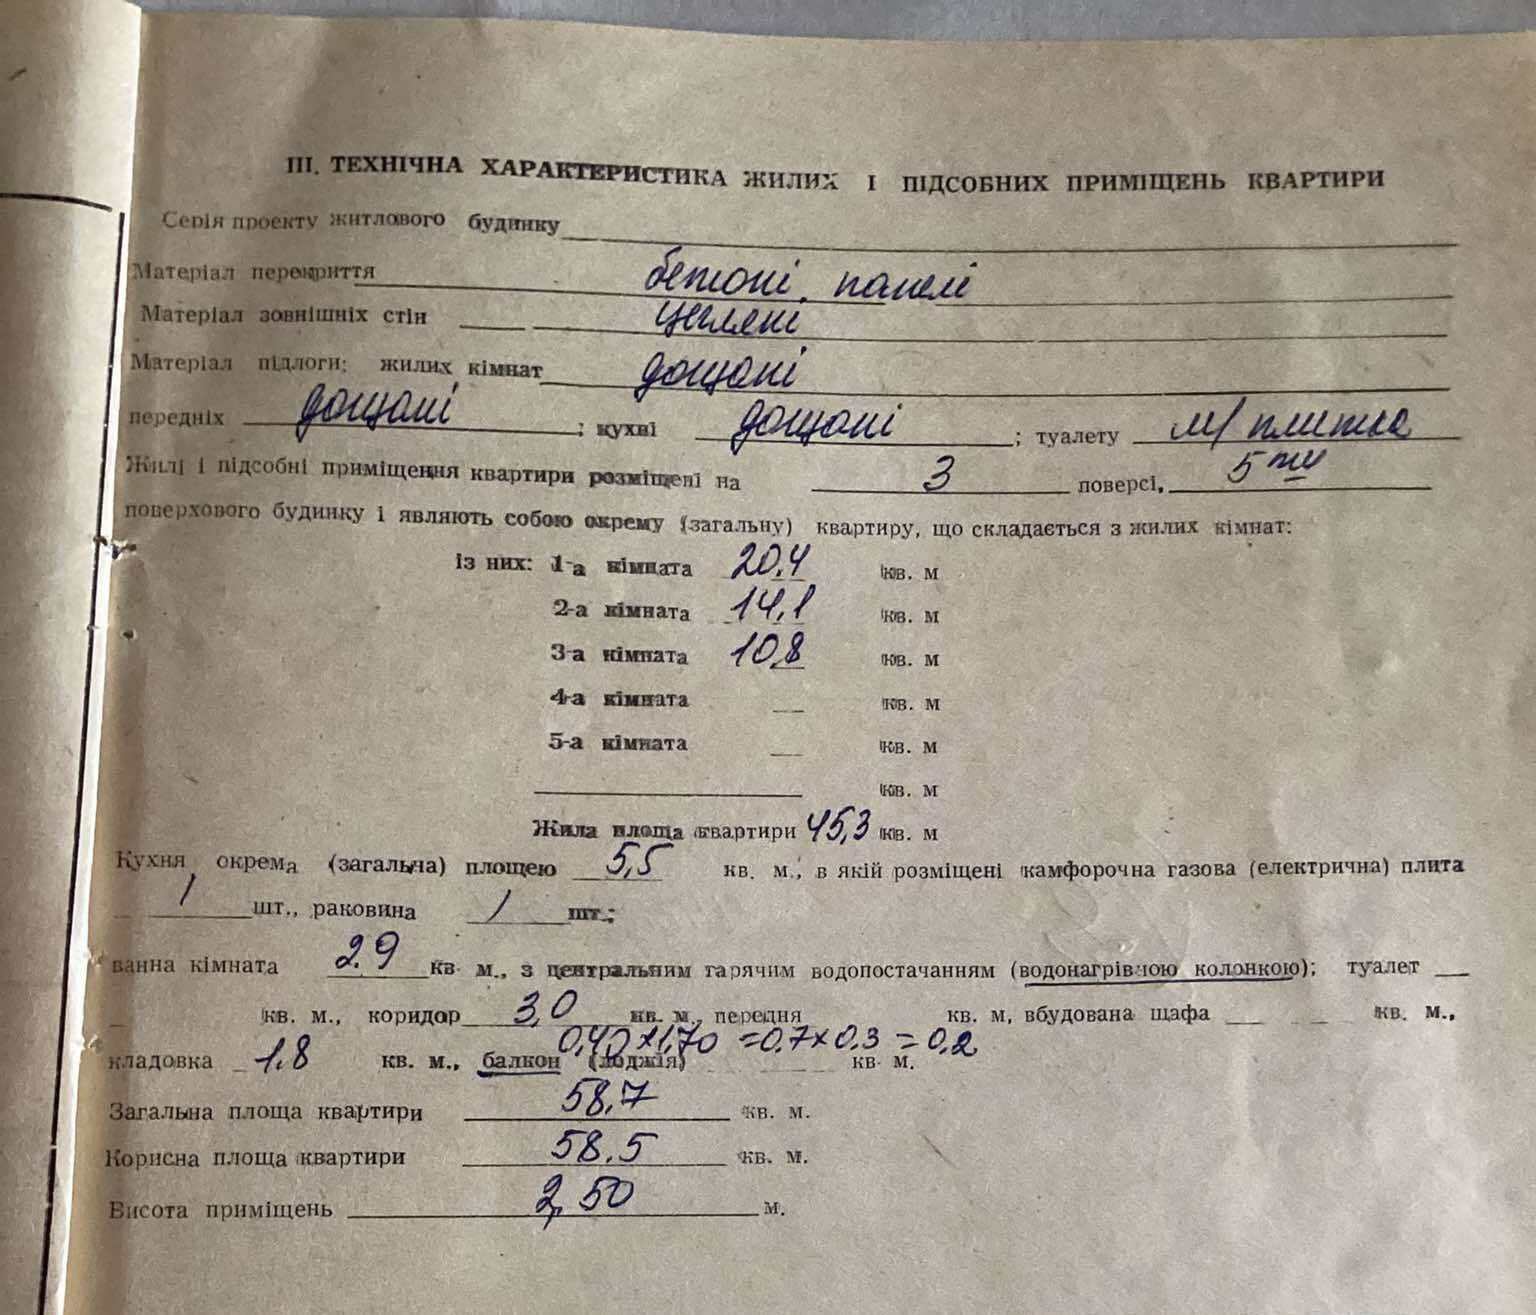 III. ТЕХНІЧНА ХАРАКТЕРИСТИКА ЖИЛИХ І ПІДСОБНИХ ПРИМІЩЕНЬ КВАРТИРИ
Серія проекту житлового будинку
Матеріал перекриття бетоні. панелі
Матеріал зовнішніх стін цегляні
Матеріал підлоги: жилих кімнат дощані
передніх дощані ; кухні дощані ; туалету м/плитка
Жилі і підсобні приміщення квартири розміщені на 3 поверсі, 5ти
поверхового будинку і являють собою окрему (загальну) квартиру, що складається з жилих кімнат:
із них: 1-а кімната 20,4 кв. м
2-а кімната 14,1 кв. м
3-а кімната 10,8 кв. м
4-а кімната — кв. м
5-а кімната — кв. м
кв. м
Жила площа квартири 45,3 кв. м
Кухня окрема (загальна) площею 5,5 кв. м., в якій розміщені камфорочна газова (електрична) плита
1 шт., раковина 1 шт.;
ванна кімната 2.9 кв. м., з центральним гарячим водопостачанням (водонагрівною колонкою); туалет
кв. м., коридор 3,0 кв. м., передня кв. м, вбудована шафа кв. м.,
0,40×1,70 =0.7×0.3 = 0,2
кладовка 1.8 кв. м., балкон (лоджія) кв. м.
Загальна площа квартири 58,7 кв. м.
Корисна площа квартири 58.5 кв. м.
Висота приміщень 2,50 м.